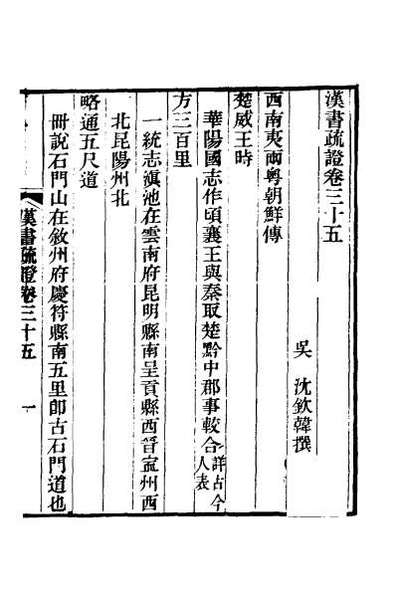 漢書疏證卷三十五
吳 沈欽韓撰
西南夷兩粵朝鮮傳
楚威王時
華陽國志作頃襄王與秦取楚黔中郡事較合詳古今人表
方三百里
一統志滇池在雲南府昆明縣南呈貢縣西晉寧州西
北昆陽州北
略通五尺道
冊說石門山在敘州府慶符縣南五里卽古石門道也
漢書疏證卷三十五 一